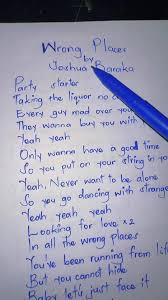 Wrong Places
by
Joshua Baraka
Party starter
Taking the liquor no c
Every guy mad over you
They wanna buy you with
Yeah yeah
Only wanna have a good time
So you put on your string in yo
Yeah, Never want to be alone
So you go dancing with strange
Yeah yeah yeah
Looking for love x2
In all the wrong places
You've been running from lif
But you cannot hide
Baby let's just face it